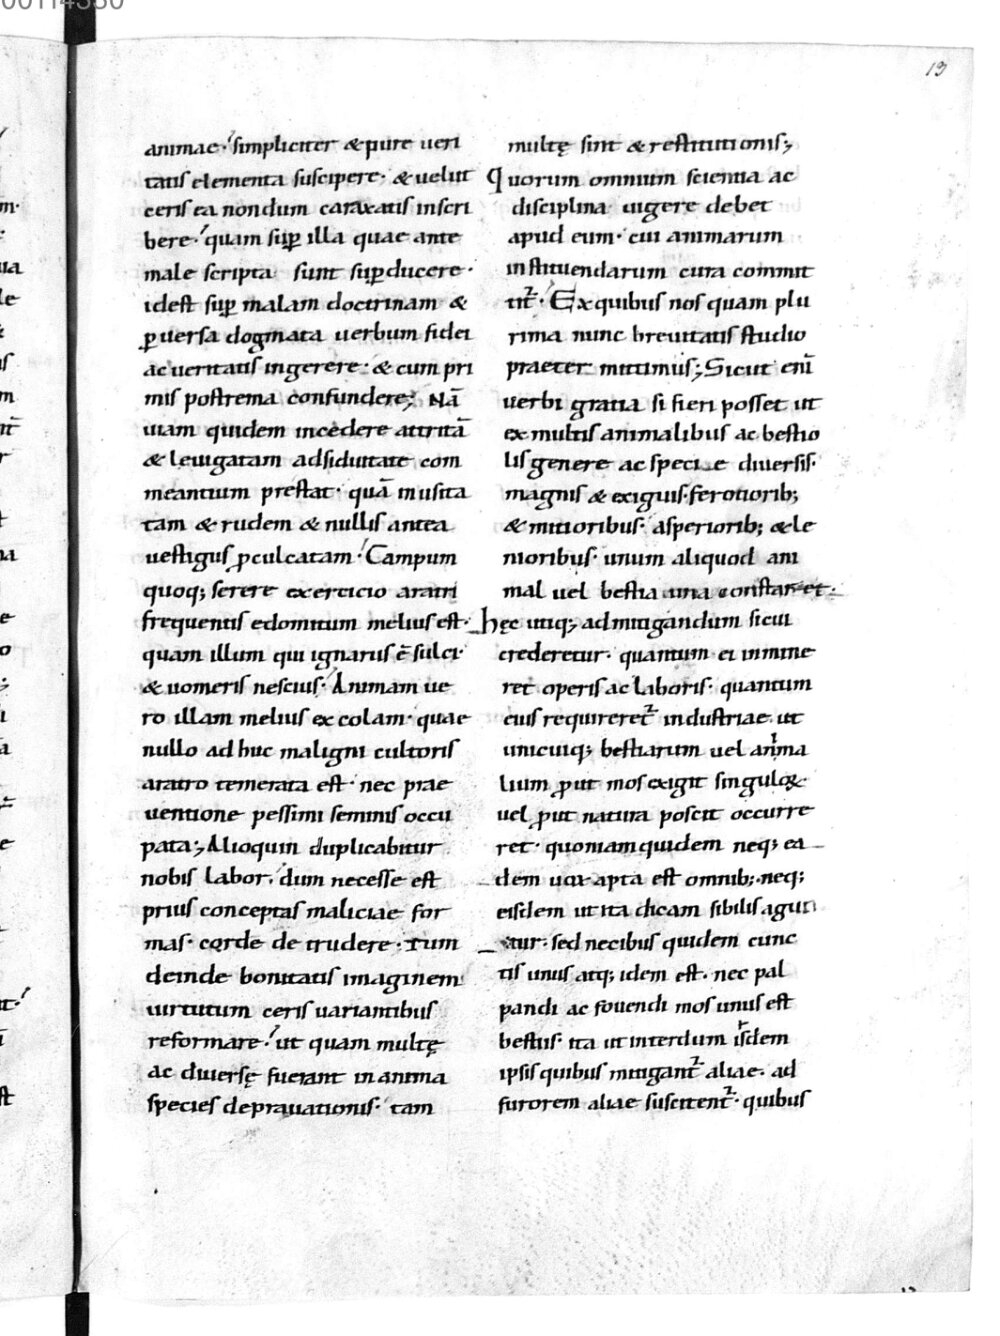 00114330
13
animae·' simpliciter & pure ueri
tatis elementa suscipere· & uelut
ceris ea nondum caraxatis inscri
bere·' quam suꝑ illa quae ante
male scripta sunt suꝑducere·
idest suꝑ malam doctrinam &
ꝑuersa dogmata uerbum fidei
ac ueritatis ingerere· & cum pri
mis postrema confundere; Nā
uiam quidem incedere attritā
& leuigatam adsiduitate com
meantium prestat· quā inusita
tam & rudem & nullis antea
uestigiis ꝓculcatam·' Campum
quoq; serere exercicio aratri
frequentis edomitum melius est·
quam illum qui ignarus ē sulci·
& uomeris nescius· Animam ue
ro illam melius excolam· quae
nullo ad huc maligni cultoris
aratro temerata est· nec prae
uentione pessimi seminis occu
pata; Alioquin duplicabitur
nobis labor,' dum necesse est
prius conceptas maliciae for
mas· corde de trudere· tum
deinde bonitatis imaginem
uirtutum ceris uariantibus
reformare·' ut quam multę
ac diuersę fuerant in anima
species deprauationis· tam
multę sint & restitutionis;
Quorum omnium scientia ac
disciplina uigere debet
apud eum· cui animarum
instituendarum cura commit
tit᷑· Ex quibus nos quam plu
rima nunc breuitatis studio
praeter mittimus; Sicut eni̅
uerbi gratia si fieri posset ut
ex multis animalibus ac bestio
lis genere ac specie diuersis·
magnis & exiguis· ferotiorib;
& mitioribus· asperiorib; & le
nioribus· unum aliquod ani
mal uel bestia una constaret·
hęc utiq; ad mitigandum sicui
crederetur· quantum ei inmine
ret operis ac laboris· quantum
eius requireret᷑ industriae· ut
unicuiq; bestiarum uel anima
lium ꝓut mos exigit singulo&
uel ꝓut natura poscit occurre
ret· quoniam quidem neq; ea
dem uox apta est omnib; neq;
eisdem ut ita dicam sibilis agun
tur· sed necibus quidem cunc
tis unus atq; idem est· nec pal
pandi ac fouendi mos unus est
bestiis· ita ut interdum isdem
ipsis quibus mitigant᷑ aliae· ad
furorem aliae suscitent᷑· quibus